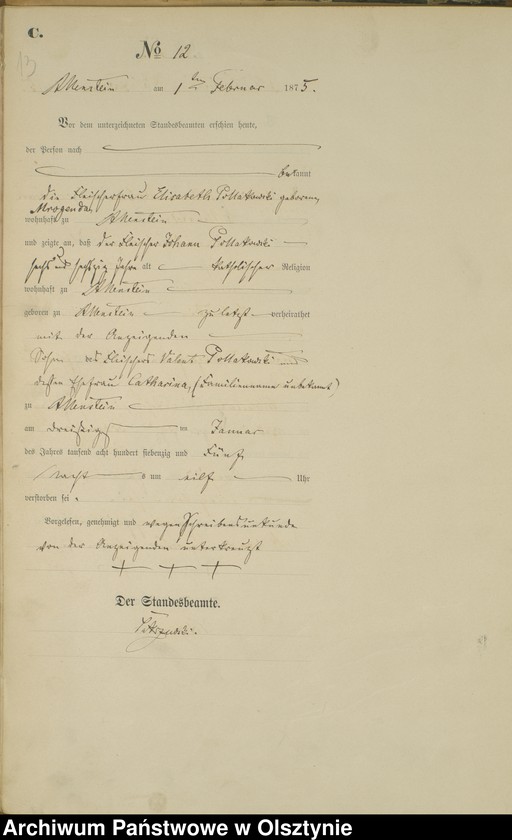 C.
No 12.
13
Allenstein am 1ten Februar 1875.
Vor dem unterzeichneten Standesbeamten erschien heute,
der Person nach
bekannt
die Fleischerfrau Elisabeth Pollakowski geborene
wohnhaft zu Allenstein
und zeigte an, daß der Fleischer Johann Pollakowski
sechs und sechszig Jahre alt katholischer Religion
wohnhaft zu Allenstein
geboren zu Allenstein zuletzt verheirathet
mit der Anzeigenden
Sohn des Fleischers Valent. Pollakowski und
dessen Ehefrau Catharina, (Familienname unbekannt)
zu Allenstein
am dreißig ten Januar
des Jahres tausend acht hundert siebenzig und fünf
Nachts um eilf Uhr
verstorben sei.
Vorgelesen, genehmigt und wegen Schreibensunkunde
von der Anzeigenden unterkreuzt
+ + +
Der Standesbeamte.
Archiwum Państwowe w Olsztynie